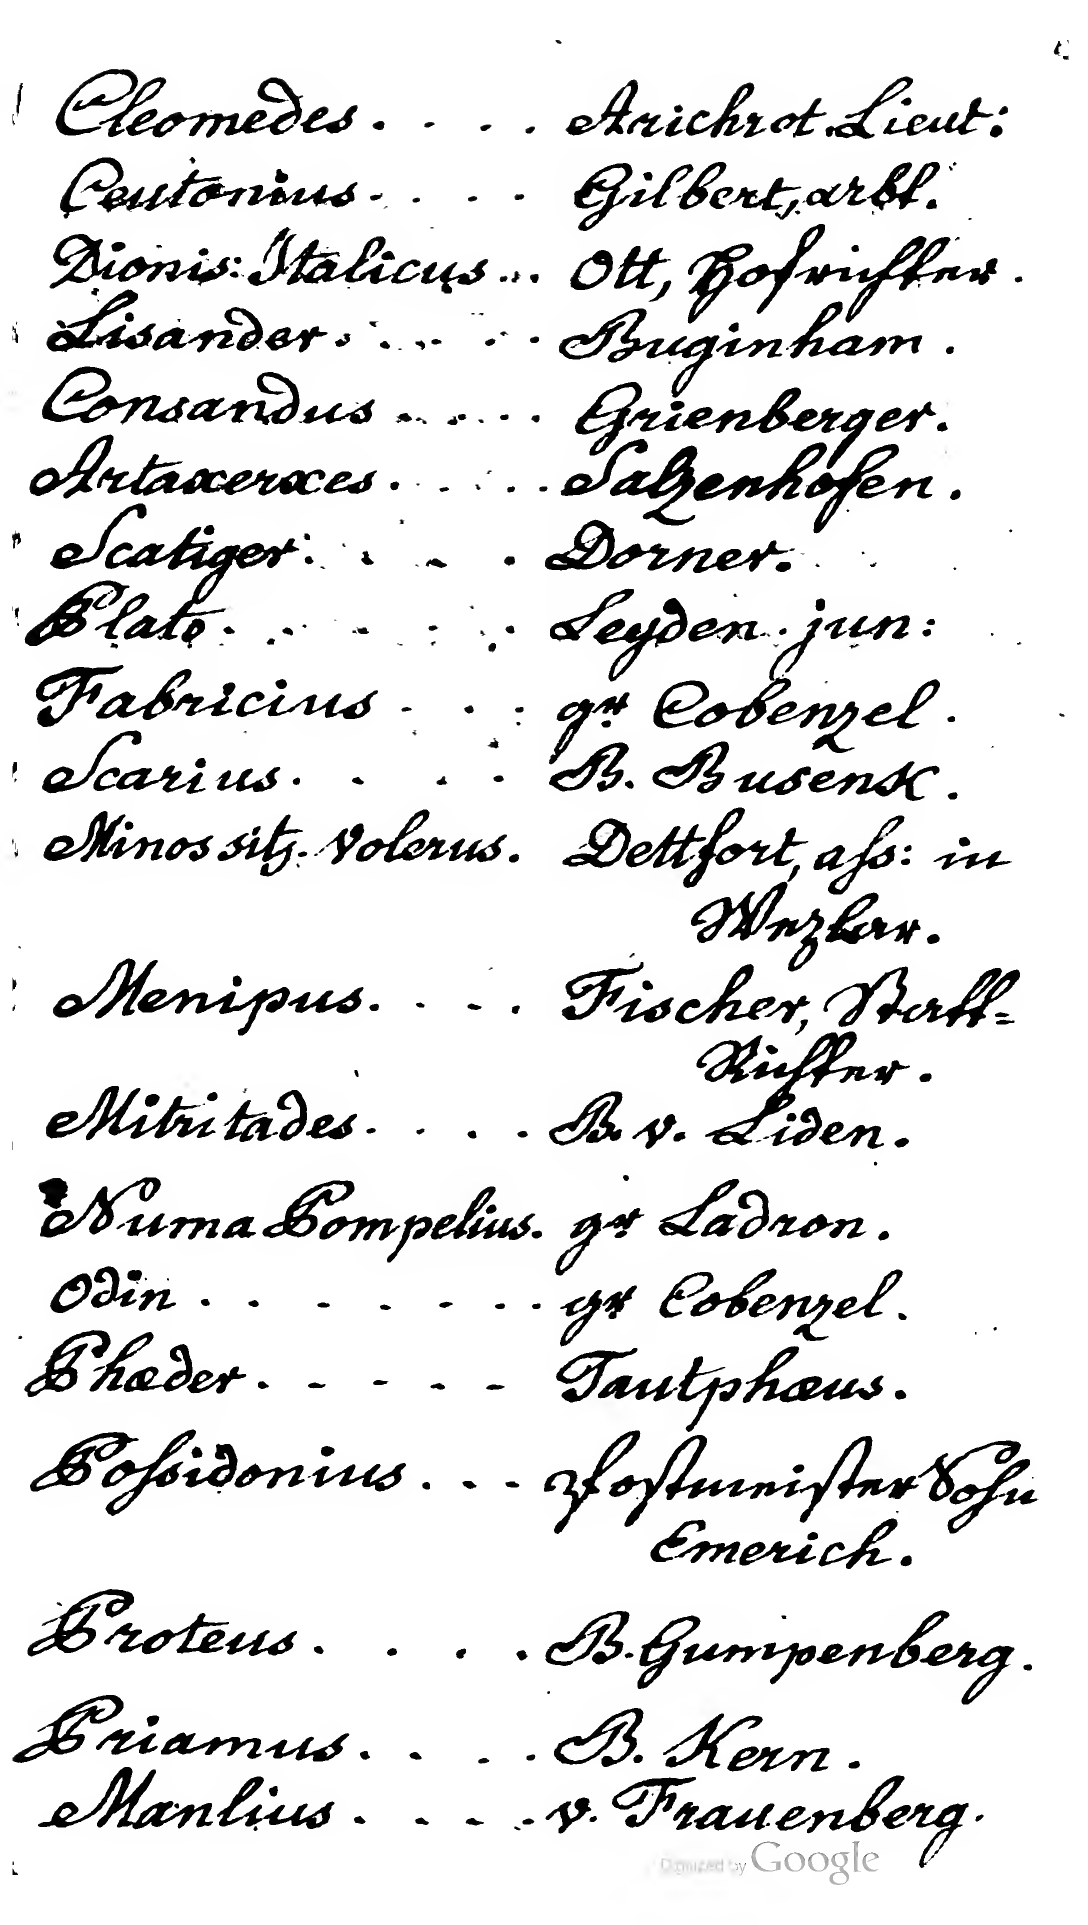 Cleomedes . . . . Arichrot. Lieut:
Ceutonius . . . . Gilbert, arbt.
Dionis: Italicus ... Ott, Hofrichter .
Lisander . . . . . Buginham .
Consandus . . . . . Grienberger.
Artaxerxes . . . . . Salzenhofen .
Scatiger : . . . Dorner.
Plato . . . . . . Leyden . jun:
Fabricius . . . gr Cobenzel .
Scarius . . . . B. Busenk .
Minos sitz. Volerus. Dettfort, ass: in
Wezlar.
Menipus. . . . Fischer, Statt-
Richter.
Mitritades . . . . B. v. Liden.
Numa Pompelius. gr Ladron .
Odin . . . . . . . gr Cobenzel .
Phæder . - - - - Tautphæus .
Possidonius . . . Postmeister Sohn
Emerich.
Proteus . . . . B. Gumpenberg .
Priamus . . . . B. Kern .
Manlius . . . . v. Frauenberg.
Digitized by Google